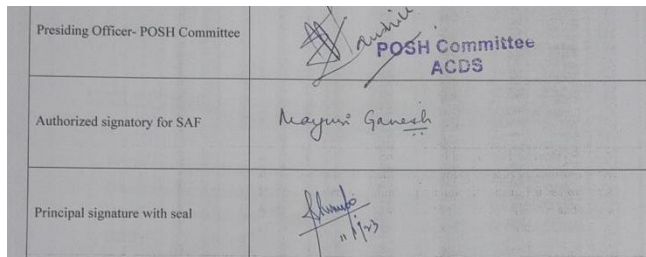 Presiding Officer- POSH Committee
POSH Committee
ACDS
Authorized signatory for SAF
Mayuri Ganesh
Principal signature with seal